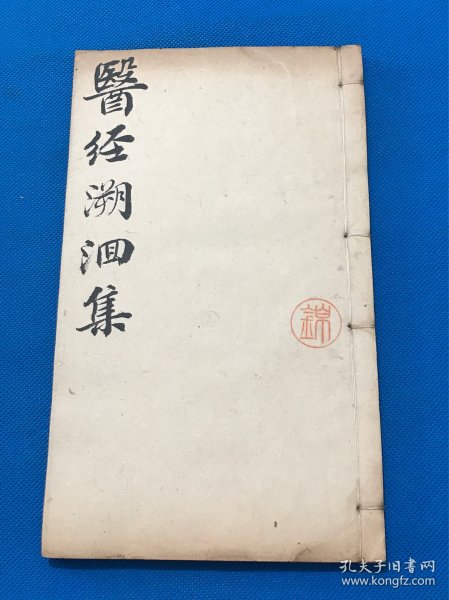 醫经溯洄集
錦
孔夫子旧书网
www.kongfz.com